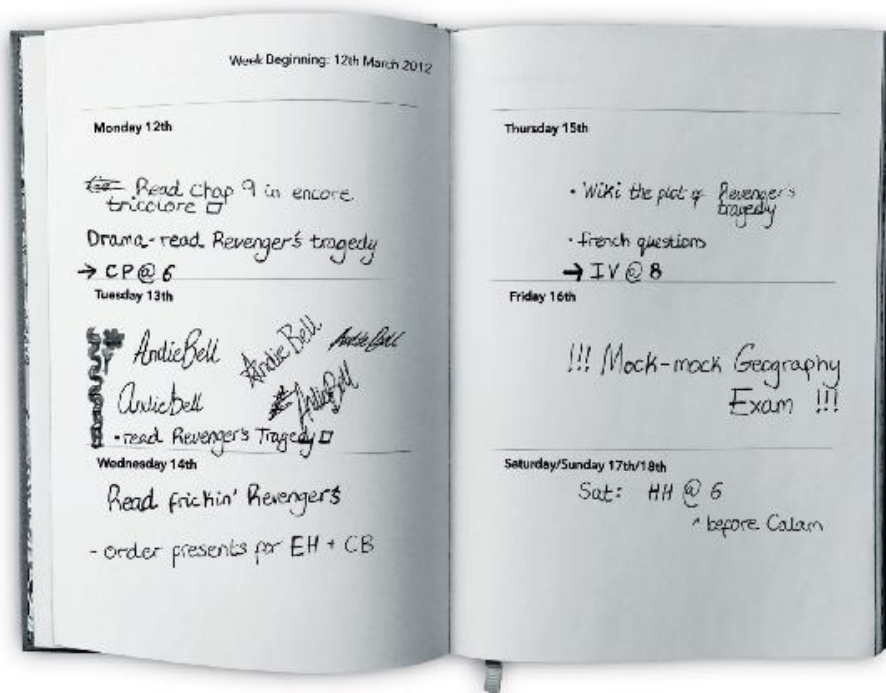 Week Beginning: 12th March 2012
Monday 12th
Read chap 9 in encore
tricolore
Drama - read Revenger's tragedy
→ CP @ 6
Tuesday 13th
AndieBell
Andie Bell
Andie Bell
AndieBell
AndieBell
• read Revenger's Tragedy
Wednesday 14th
Read frickin' Revengers
- order presents for EH + CB
Thursday 15th
• Wiki the plot of Revenger's
tragedy
• french questions
→ IV @ 8
Friday 16th
!!! Mock-mock Geography
Exam !!!
Saturday/Sunday 17th/18th
Sat: HH @ 6
^ before Calam